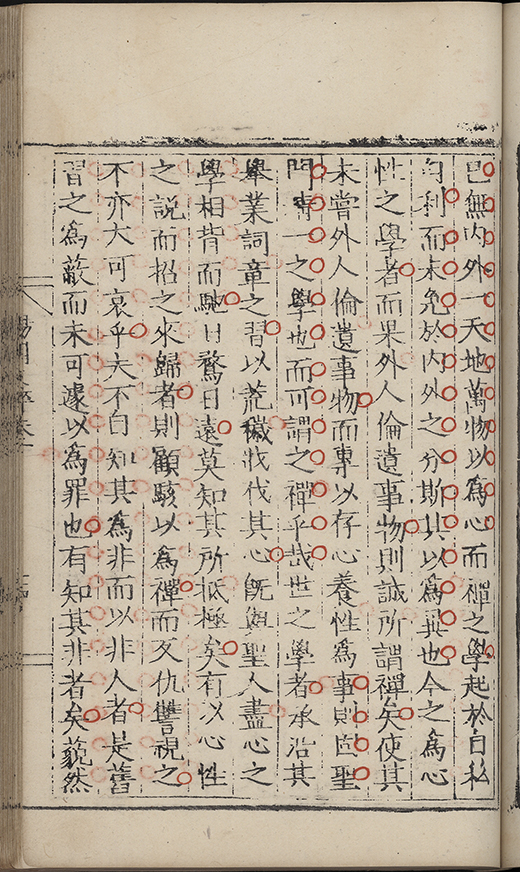 已無內外一天地萬物以為心而禪之學起於自私
自利而未免於內外之分斯其以為異也今之為心
性之學者而果外人倫遺事物則誠所謂禪矣使其
未嘗外人倫遺事物而專以存心養性為事則固聖
門精一之學也而可謂之禪乎哉世之學者承沿其
舉業詞章之習以荒穢戕伐其心既與聖人盡心之
學相背而馳日騖日遠莫知其所抵極矣有以心性
之說而招之來歸者則顧駭以為禪而反仇讐視之
不亦大可哀乎夫不自知其為非而以非人者是舊
習之為蔽而未可遽以為罪也有知其非者矣藐然